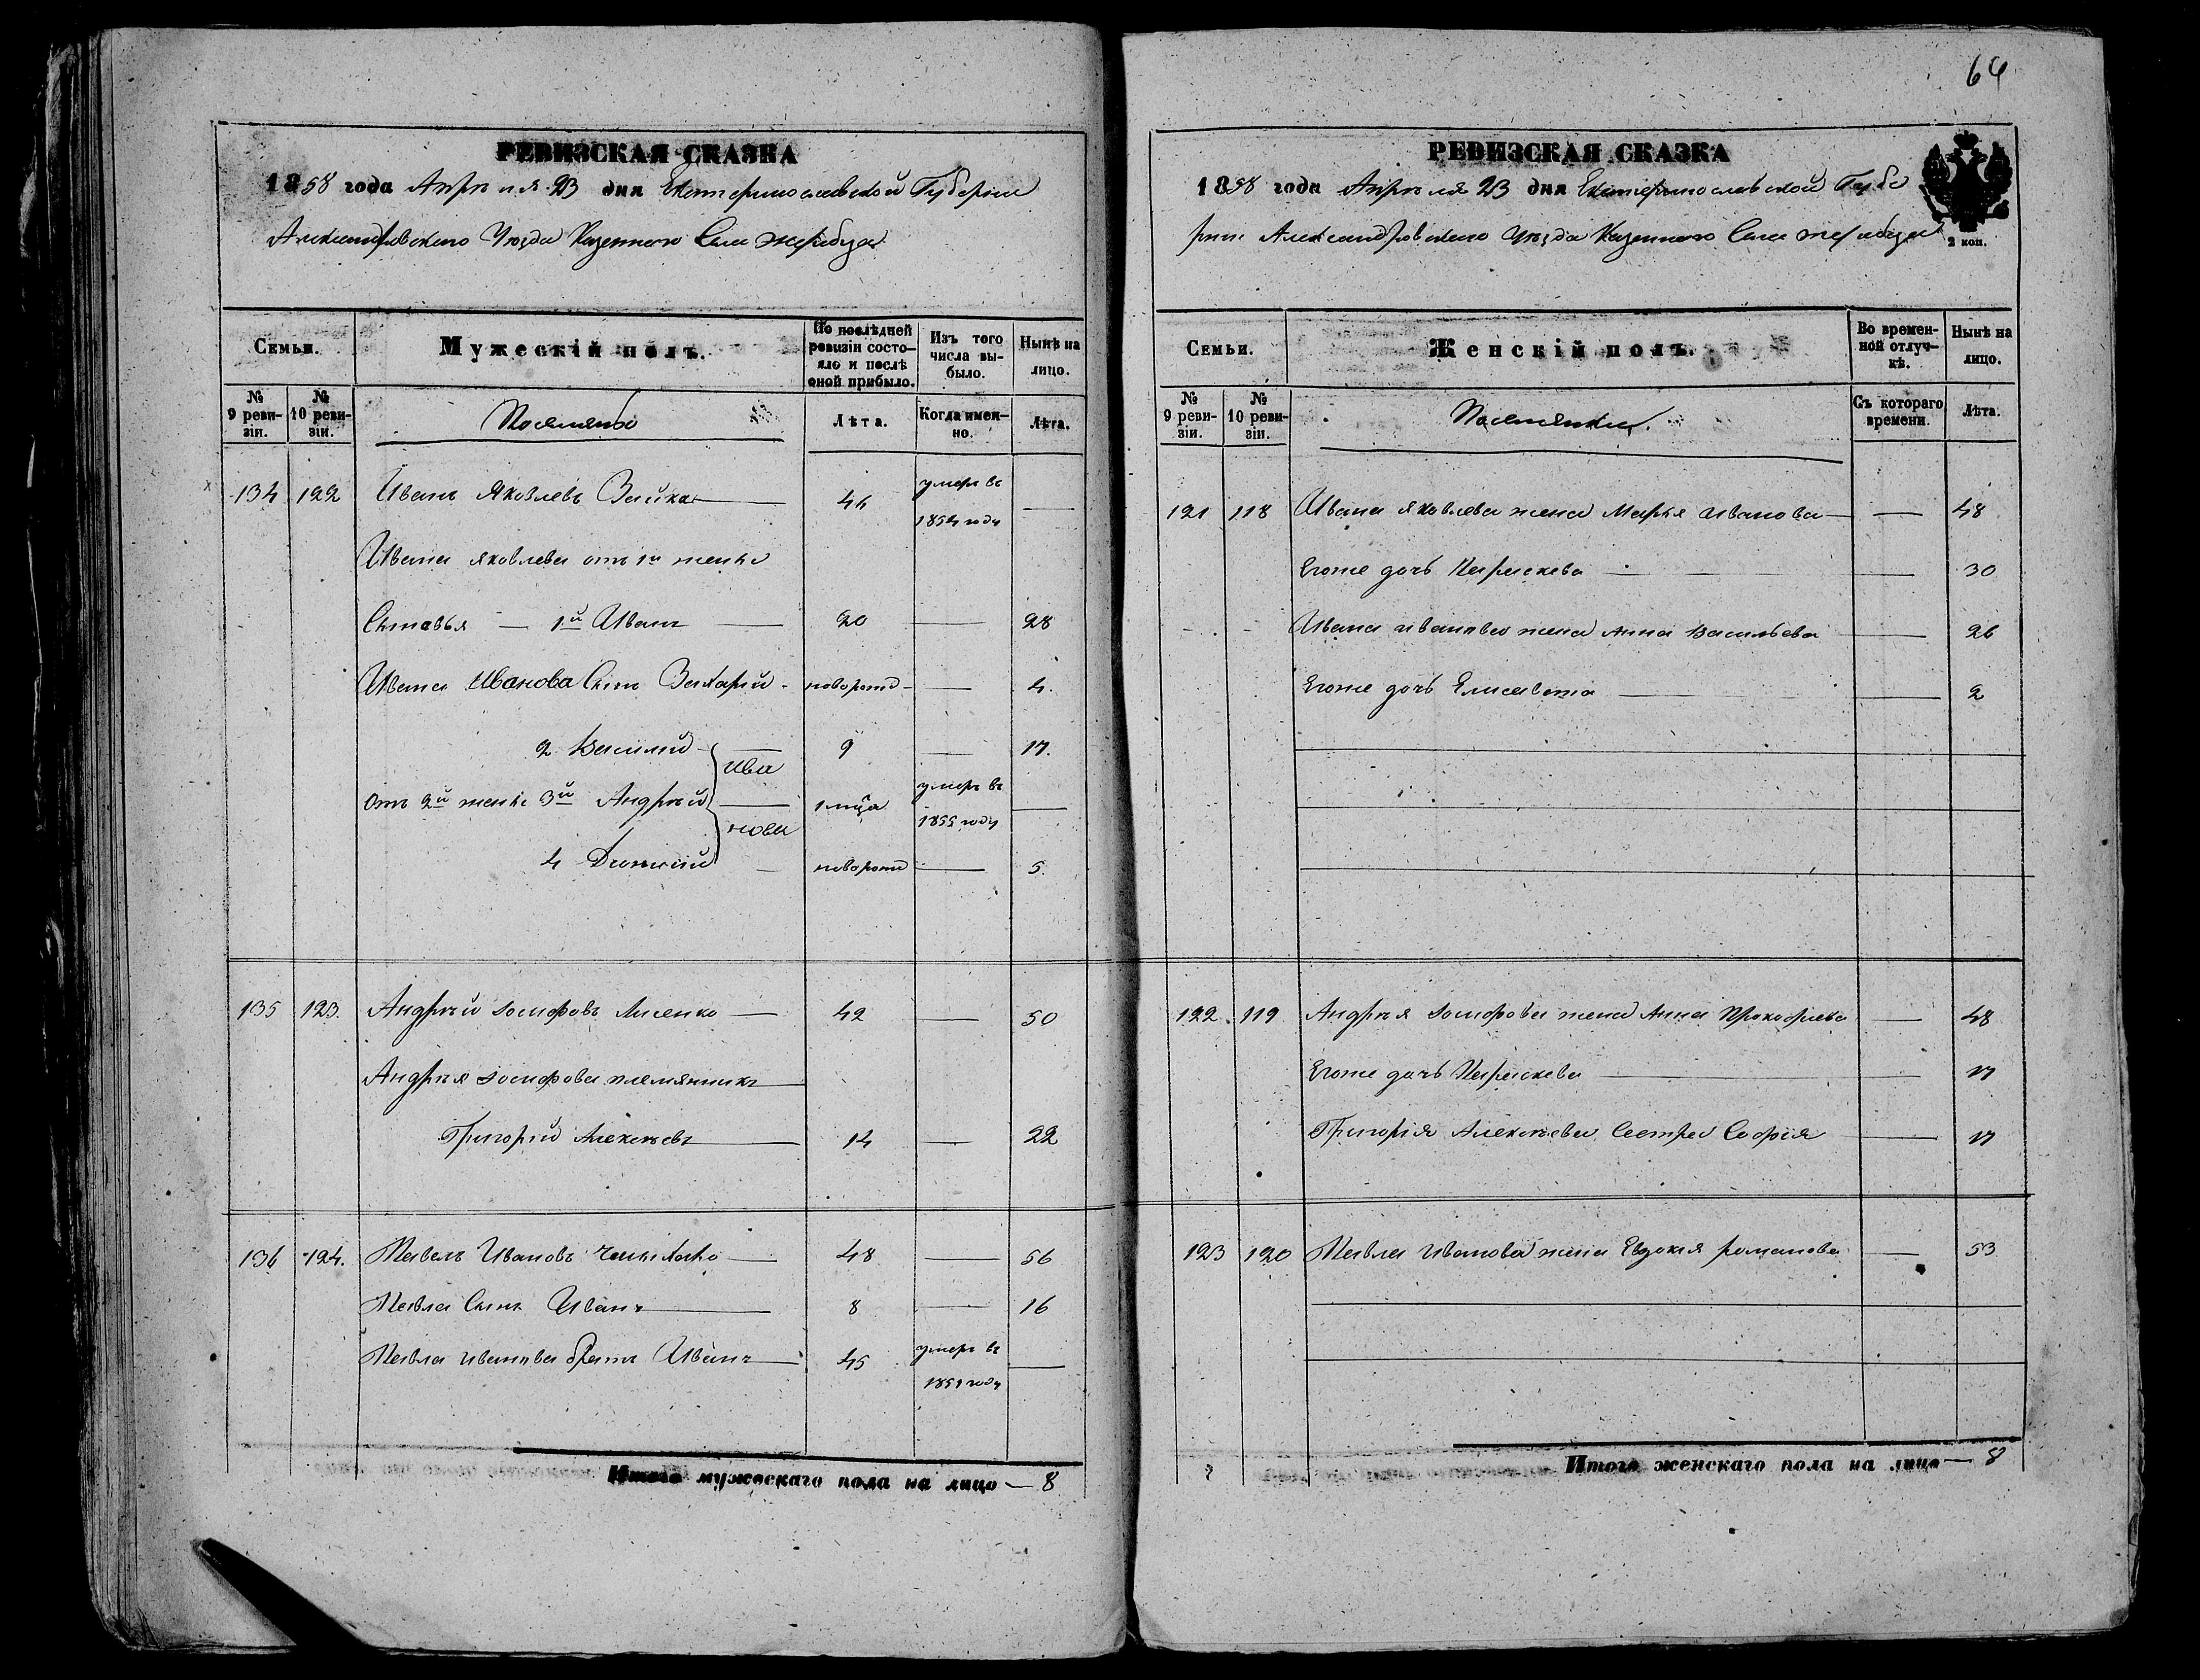 64
РЕВИЗСКАЯ СКАЗКА
1858 года Апрѣля 23 дня Екатеринославской Губерніи
Александровскаго Уѣзда Казеннаго Села Жеребца
Семьи.
Мужескій полъ.
По послѣдней ревизіи состояло и послѣ оной прибыло.
Изъ того числа выбыло.
Нынѣ на лицо.
№ 9 ревизіи.
№ 10 ревизіи.
Поселяне
Лѣта.
Когда именно.
Лѣта.
134 122 Иванъ Яковлевъ Заика 46 умеръ въ 1854 году —
Ивана Яковлева отъ 1й жены
Сыновья — 1й Иванъ 20 — 28
Ивана Иванова Сынъ Захарій новорожд — 4.
2 Василій 9 — 17.
отъ 2й жены 3й Андрѣй 1 мца умеръ въ 1855 году —
Ива
нови
4 новорожд — 5.
135 123. Андрѣй Іосифовъ Лисенко 42 — 50
Андрѣя Іосифова племянникъ
Григорій Алексѣевъ 14 — 22
136 124. Павелъ Ивановъ 48 — 56
Павла Сынъ Иванъ 8 — 16
Павла Иванова братъ Иванъ 45 умеръ въ 1851 году —
Итого мужескаго пола на лицо — 8
РЕВИЗСКАЯ СКАЗКА
1858 года Апрѣля 23 дня Екатеринославской Губе
рніи Александровскаго Уѣзда Казеннаго Села Жеребца
2 коп.
Семьи.
Женскій полъ.
Во временной отлучкѣ.
Нынѣ на лицо.
№ 9 ревизіи.
№ 10 ревизіи.
Поселянки.
Съ котораго времени.
Лѣта.
121 118 Ивана Яковлева жена Марья Иванова — 48
Егоже дочь Параскева — 30
Ивана Иванова жена Анна Васильева — 26
Егоже дочь Елисавета — 2
122. 119 Андрѣя Іосифова жена Анна Прокофьева — 48
Егоже дочь Параскева — 17
Григорія Алексѣева Сестра Софія — 17
123 120 Павла Иванова жена Евдокія Романова — 53
Итого женскаго пола на лицо — 8